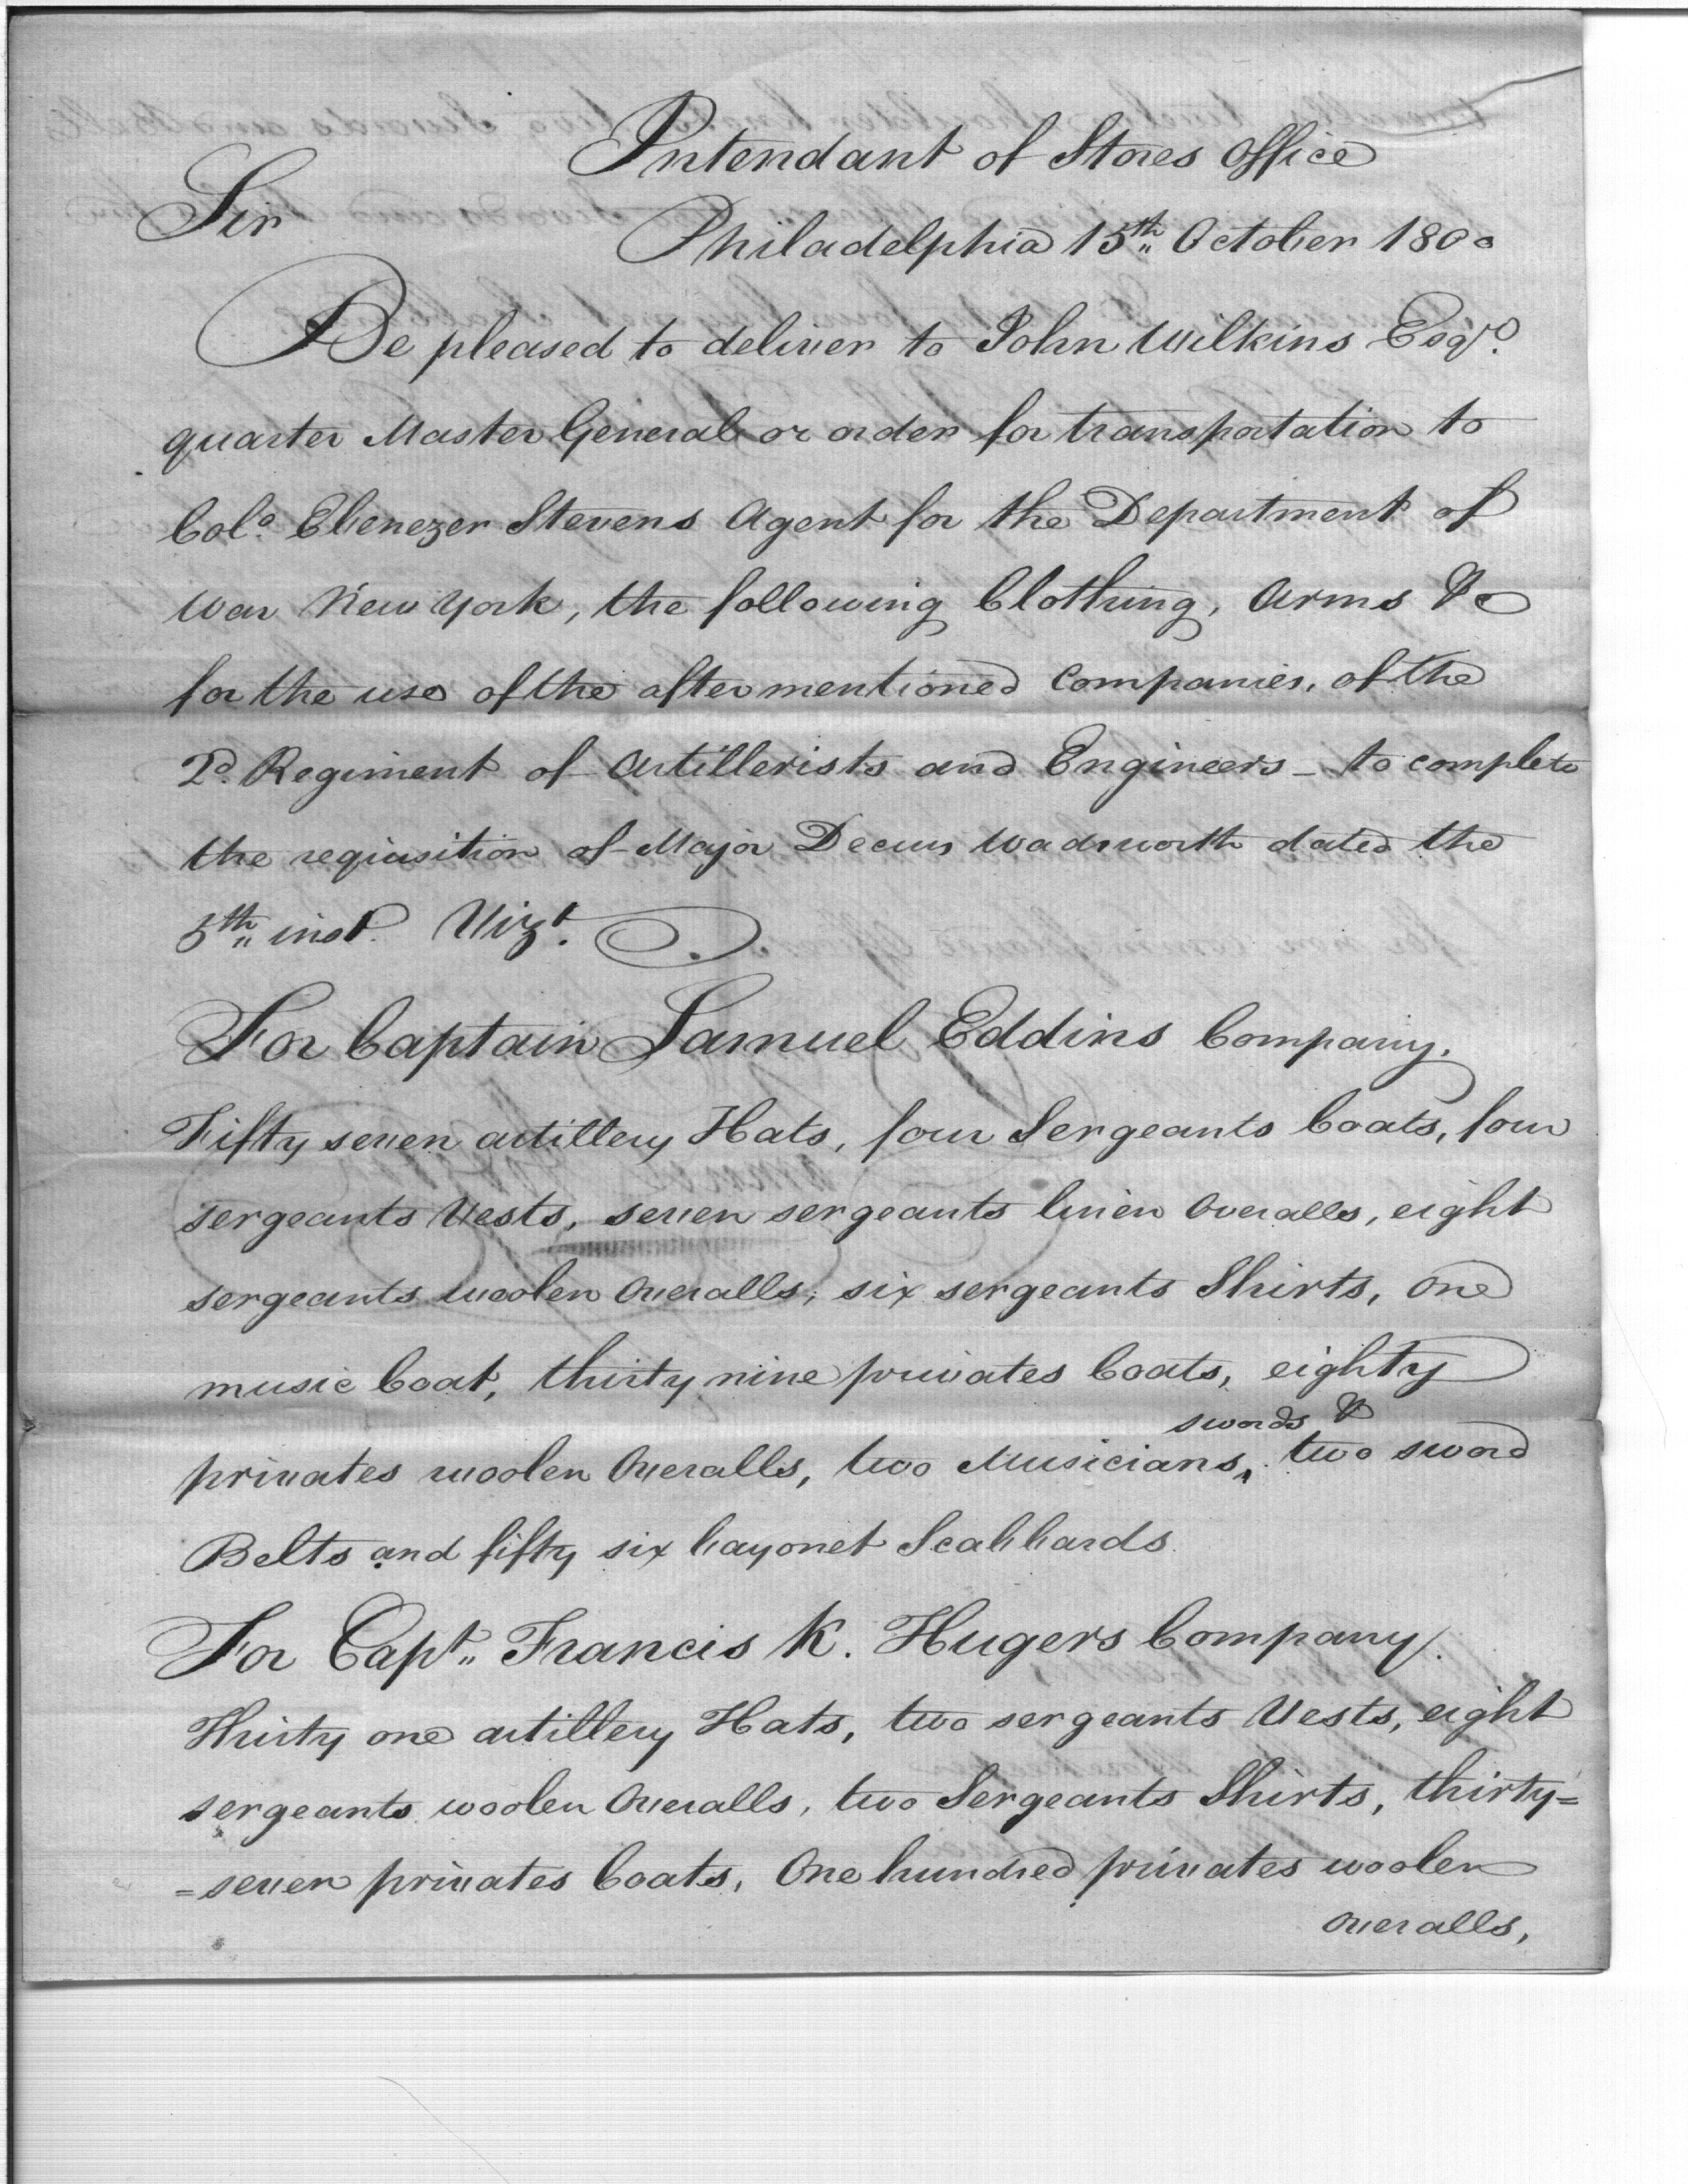 Intendant of Stores Office
Sir
Philadelphia 15th October 1800
Be pleased to deliver to John Wilkins Esqr.
quarter Master General or order for transportation to
Colo. Ebenezer Stevens Agent for the Department of
War New York, the following Clothing, Arms &c
for the use of the after mentioned Companies, of the
2d. Regiment of Artillerists and Engineers - to complete
the requisition of Major Decius Wadsworth dated the
5th inst. Vizt.
For Captain Samuel Eddins Company.
Fifty seven artillery Hats, four Sergeants Coats, four
sergeants Vests, seven sergeants linen Overalls, eight
sergeants woolen Overalls, six sergeants Shirts, One
music Coat, thirty nine privates Coats, eighty
swords &
privates woolen Overalls, two Musicians, two sword
Belts and fifty six bayonet Scabbards.
For Capt. Francis K. Hugers Company.
Thirty one artillery Hats, two sergeants Vests, eight
sergeants woolen Overalls, two Sergeants Shirts, thirty=
=seven privates Coats, One hundred privates woolen
Overalls,